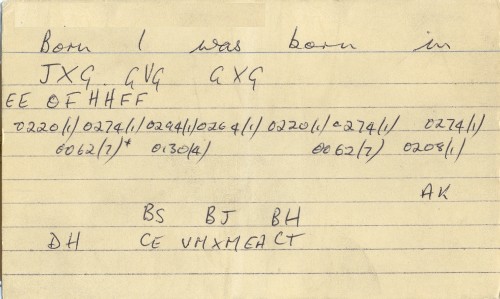 Born I was born in
JXG GVG GXG
EE OF HHFF
0220(1) 0274(1) 0294(1) 0264(1) 0220(1) 0274(1) 0274(1)
0062(7)* 0130(4) 0062(7) 0208(1)
AK
BS BJ BH
DH CE VMXMEA CT